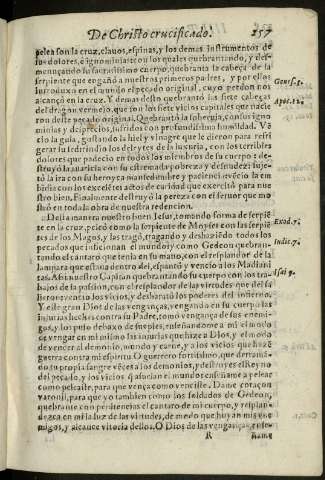 De Christo crucificado. 257
pelea son la cruz, clauos, espinas, y los demas instrumentos de
sus dolores, è ignominias: con los quales quebrantando, y des-
menuçando su sacratissimo cuerpo, quebranta la cabeça de la
serpiente que engañò a nuestros primeros padres, y por ellos
introduxo en el mundo el pecado original, cuyo perdon nos
alcançò en la cruz. Y demas desto quebrantò las siete cabeças
del dragon vermejo, que son los siete vicios capitales que nacie
ron deste pecado original. Quebrantò la soberuia, con sus igno
minias y desprecios, sufridos con profundissima humildad. Vẽ
ciò la gula, gustando la hiel y vinagre que le dieron para refri
gerar su sed: rindio los deleytes de la luxuria, con los terribles
dolores que padecio en todos los miembros de su cuerpo: des-
truyò la auaricia con su estremada pobreza y desnudez: suje-
tò la ira con su heroyca mansedumbre y paciencia: vẽcio la em
bidia con los excelẽtes actos de caridad que exercitò para nue-
stro bien. Finalmente destruyò la pereza con el feruor que mo
strò en toda la obra de nuestra redencion.
Desta manera nuestro buen Iesus, tomando forma de serpiẽ
te en la cruz, peleò como la serpiente de Moyses con las serpiẽ
tes de los Magos, y las tragò, tragando y deshaziẽdo todos los
pecados que inficionan el mundo: y como Gedeon quebran-
tando el cantaro que tenia en su mano, con el resplandor de la
lampara que estaua dentro del, espantò y vencio a los Madiani
tas. Assi nuestro Capitan quebrantando su cuerpo con los tra-
bajos de la passion, con el resplandor de las virtudes que del sa
lieron vencio los vicios, y desbaratò los poderes del infierno.
Y este gran Dios de las venganças, vengando en su cuerpo las
injurias hechas contra su Padre, tomò vengança de sus enemi-
gos, y los puso debaxo de sus pies, enseñandome a mi el modo
de vengar en mi mismo las injurias que hize a Dios, y el modo
de vencer al demonio, mundo y carne, y a los vicios que hazẽ
guerra contra mi espiritu. O guerrero fortissimo, que derramã-
do tu propia sangre vẽces a los demonios, y destruyes el Reyno
del pecado, y los vicios q̃ assuelan el mundo: enseñame a pelear
como peleaste, para que vença como venciste. Dame coraçon
varonil, para que yo tambien como los soldados de Gedeon,
quebrante con penitencias el cantaro de mi cuerpo, y resplan-
dezca en mi la luz de las virtudes, de modo que huyan mis ene
migos, y alcance vitoria dellos. O Dios de las venganças,
R
Genes. 3.
Apoc. 12.
Exod. 7.
Iudic. 7.
Isai 9.